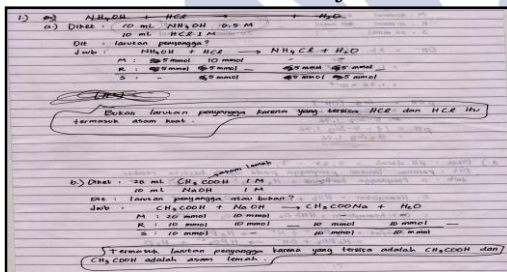 1.) a) NH4OH + HCl → + H2O
a.) Diket : 10 mL NH4OH 0.5 M
10 mL HCl 1 M
Dit : larutan penyangga?
Jwb : NH4OH + HCl → NH4Cl + H2O
M : 5 mmol 10 mmol - -
R : 5 mmol 5 mmol 5 mmol 5 mmol
S : - 5 mmol 5 mmol 5 mmol
Bukan larutan penyangga karena yang tersisa HCl dan HCl itu
termasuk asam kuat.
b.) Diket : 20 mL CH3COOH 1 M asam lemah
10 mL NaOH 1 M
Dit : larutan penyangga atau bukan?
Jwb : CH3COOH + NaOH → CH3COONa + H2O
M : 20 mmol 10 mmol - -
R : 10 mmol 10 mmol 10 mmol 10 mmol
S : 10 mmol - 10 mmol 10 mmol
Termasuk larutan penyangga karena yang tersisa adalah CH3COOH dan
CH3COOH adalah asam lemah.